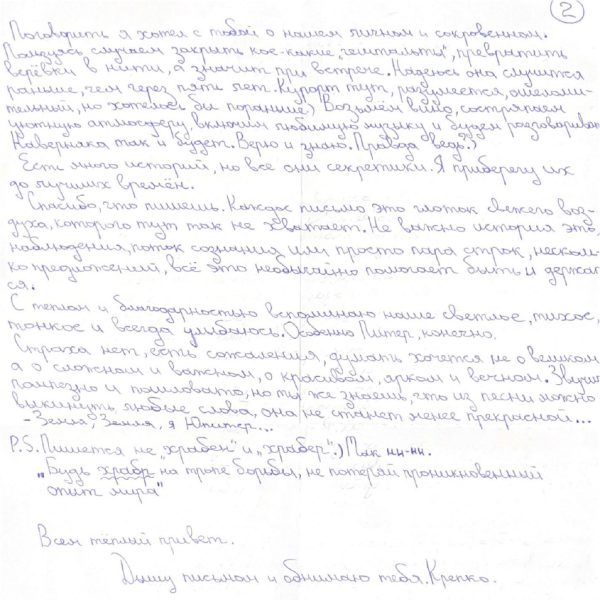 2
Поговорить я хотел с тобой о нашем личном и сокровенном.
Пользуясь случаем закрыть кое-какие „гештальты", превратить
верёвки в нити, а значит при встрече. Надеюсь она случится
раньше, чем через пять лет. Курорт тут, разумеется, омолази-
тельный, но хотелось бы пораньше) Возьмём вино, состряпаем
уютную атмосферу, включим любимую музыку и будем разговорива
Наверняка так и будет. Верю и знаю. Правда ведь?)
Есть много историй, но все они секретики. Я приберегу их
до лучших времён.
Спасибо, что пишешь. Каждое письмо это глоток свежего воз-
духа, которого тут так не хватает. Не важно история это,
наблюдения, поток сознания или просто пара строк, несколь-
ко предложений, всё это необычайно помогает быть и держат
ся.
С теплом и благодарностью вспоминаю наше светлое, тихое,
тонкое и всегда улыбаюсь. Особенно Питер, конечно.
Страха нет, есть сожаления, думать хочется не о великом
а о сложном и важном, о красивом, ярком и вечном. Звучит
помпезно и пошловато, но ты же знаешь, что из песни можно
выкинуть любые слова, она не станет менее прекрасной...
- Земля, Земля, я Юпитер...
P.S. Пишется не „храбен" и „храбер".) Так ни-ни.
„Будь храбр на тропе борьбы, не потеряй проникновенный
опыт мира"
Всем тёплый привет.
Дышу письмами и обнимаю тебя. Крепко.